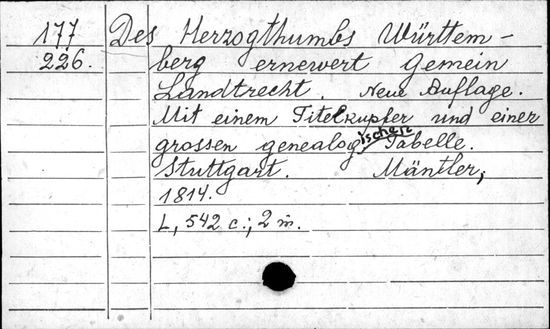 177 Des Herzogthumbs Württem-
226. berg ernewert Gemein
Landtrecht. Neue Auflage.
Mit einem Titelkupfer und einer
grossen genealogischen Tabelle.
Stuttgart. Mäntler,
1814.
L, 542 c.; 2 m.